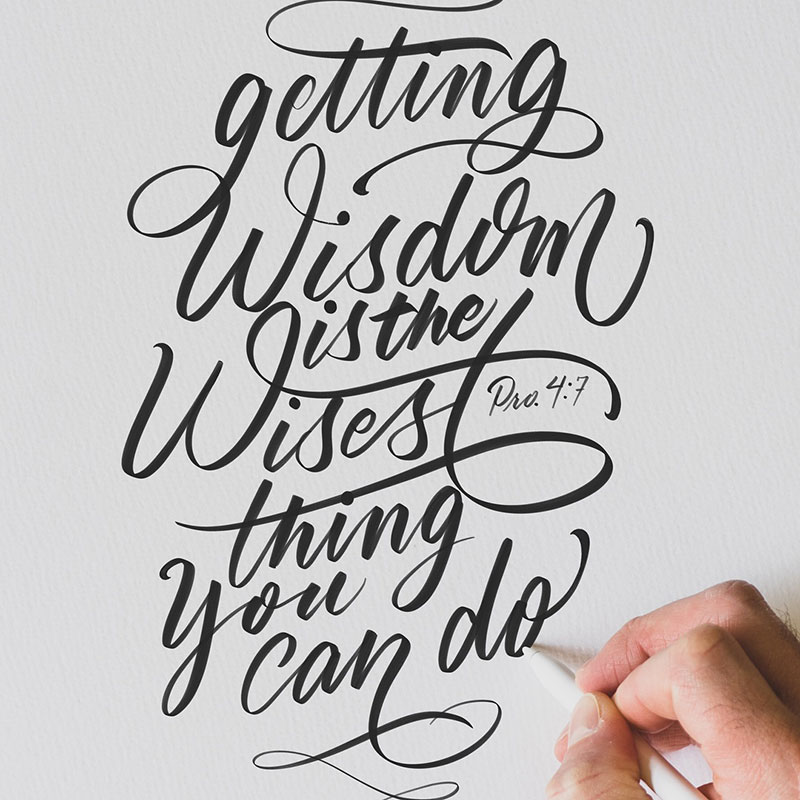 getting
Wisdom
is the
Wisest
Pro. 4:7
thing
you
can do